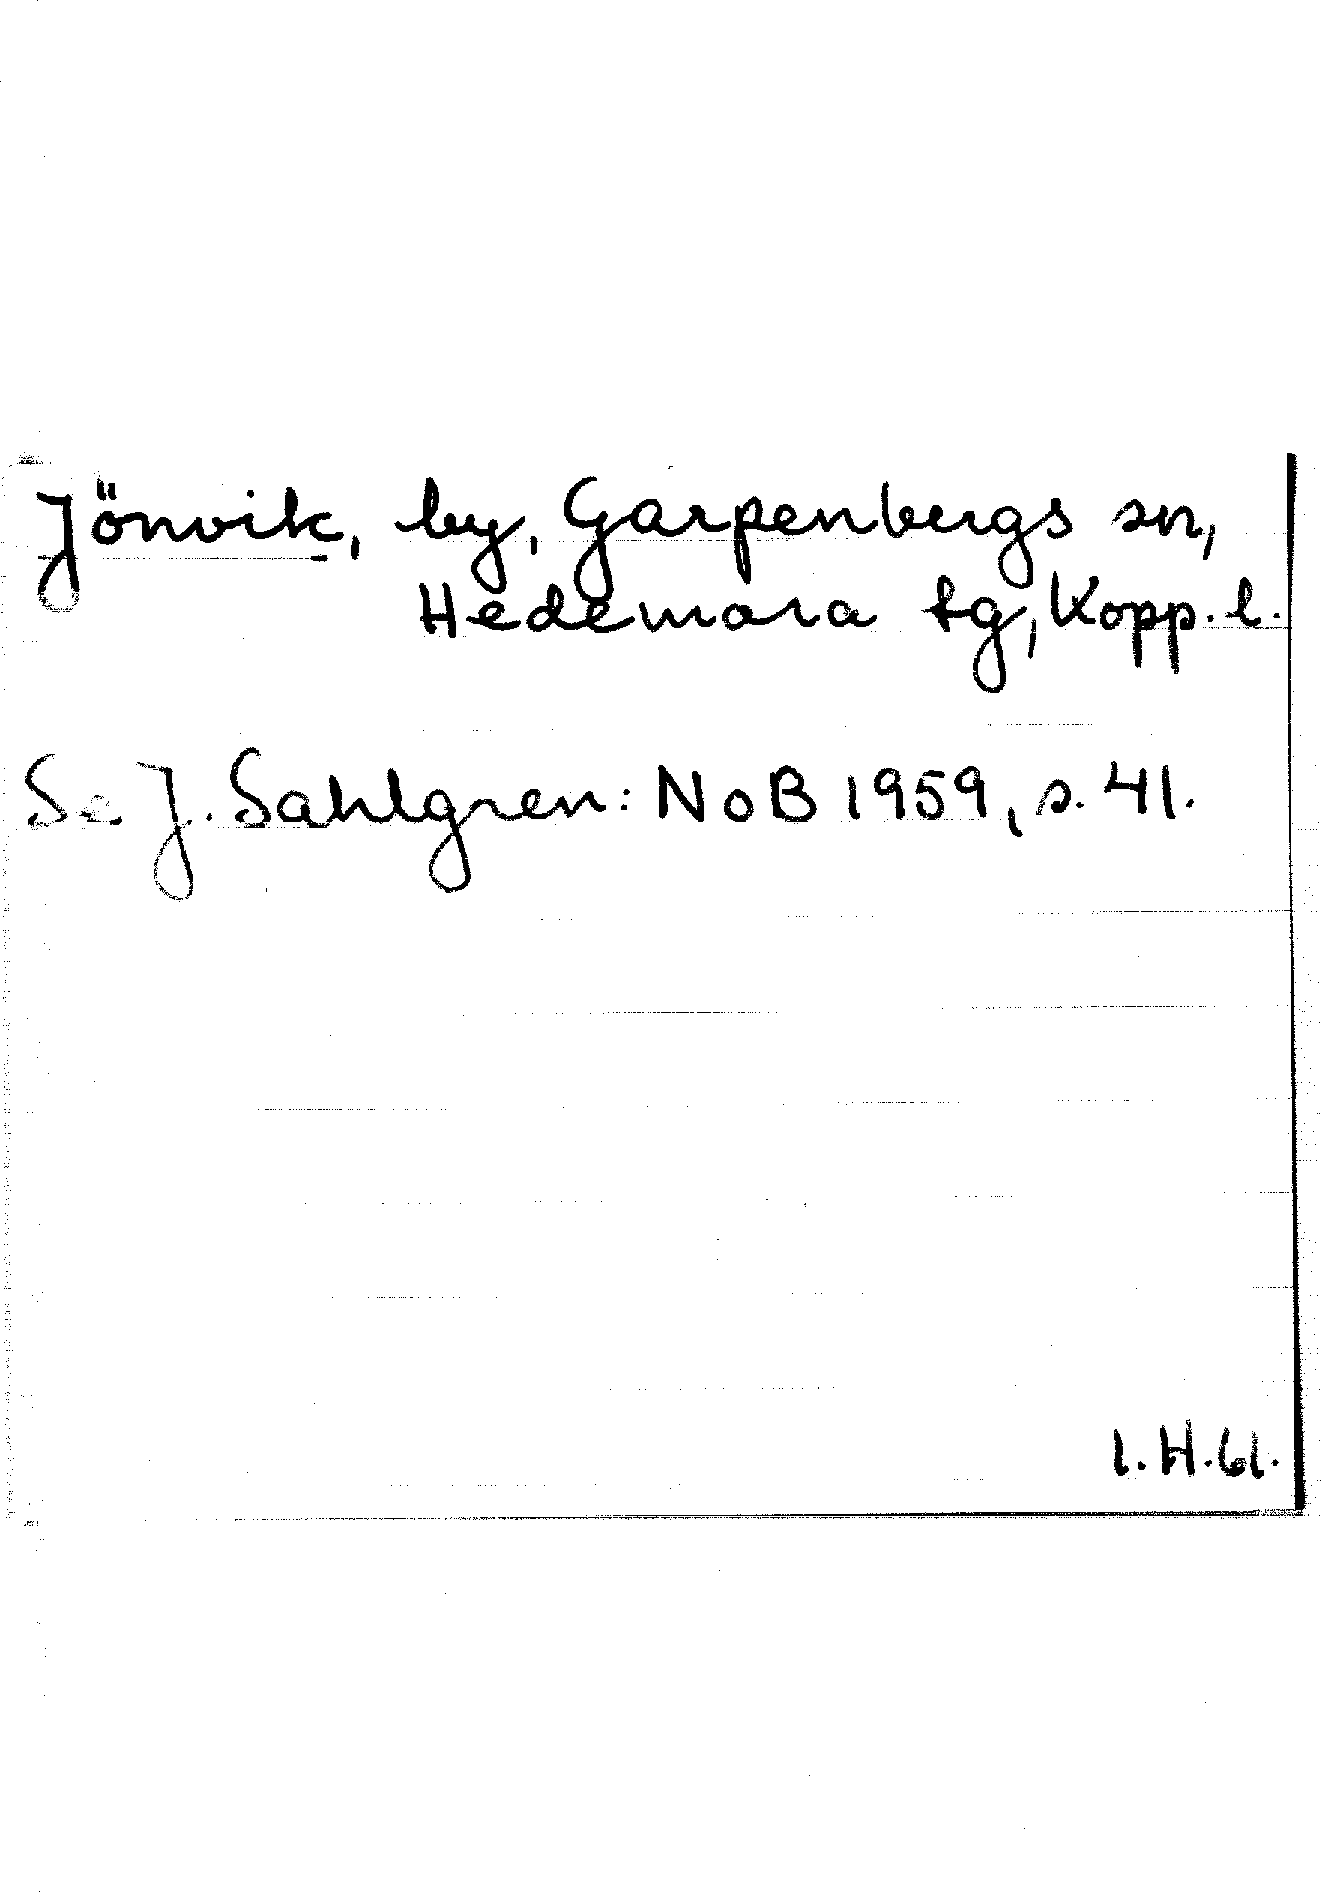 Jönvik, by, Garpenbergs sn,
Hedemora tg, Kopp. l.
Se J. Sahlgren: NoB 1959, s. 41.
I. H. 61.